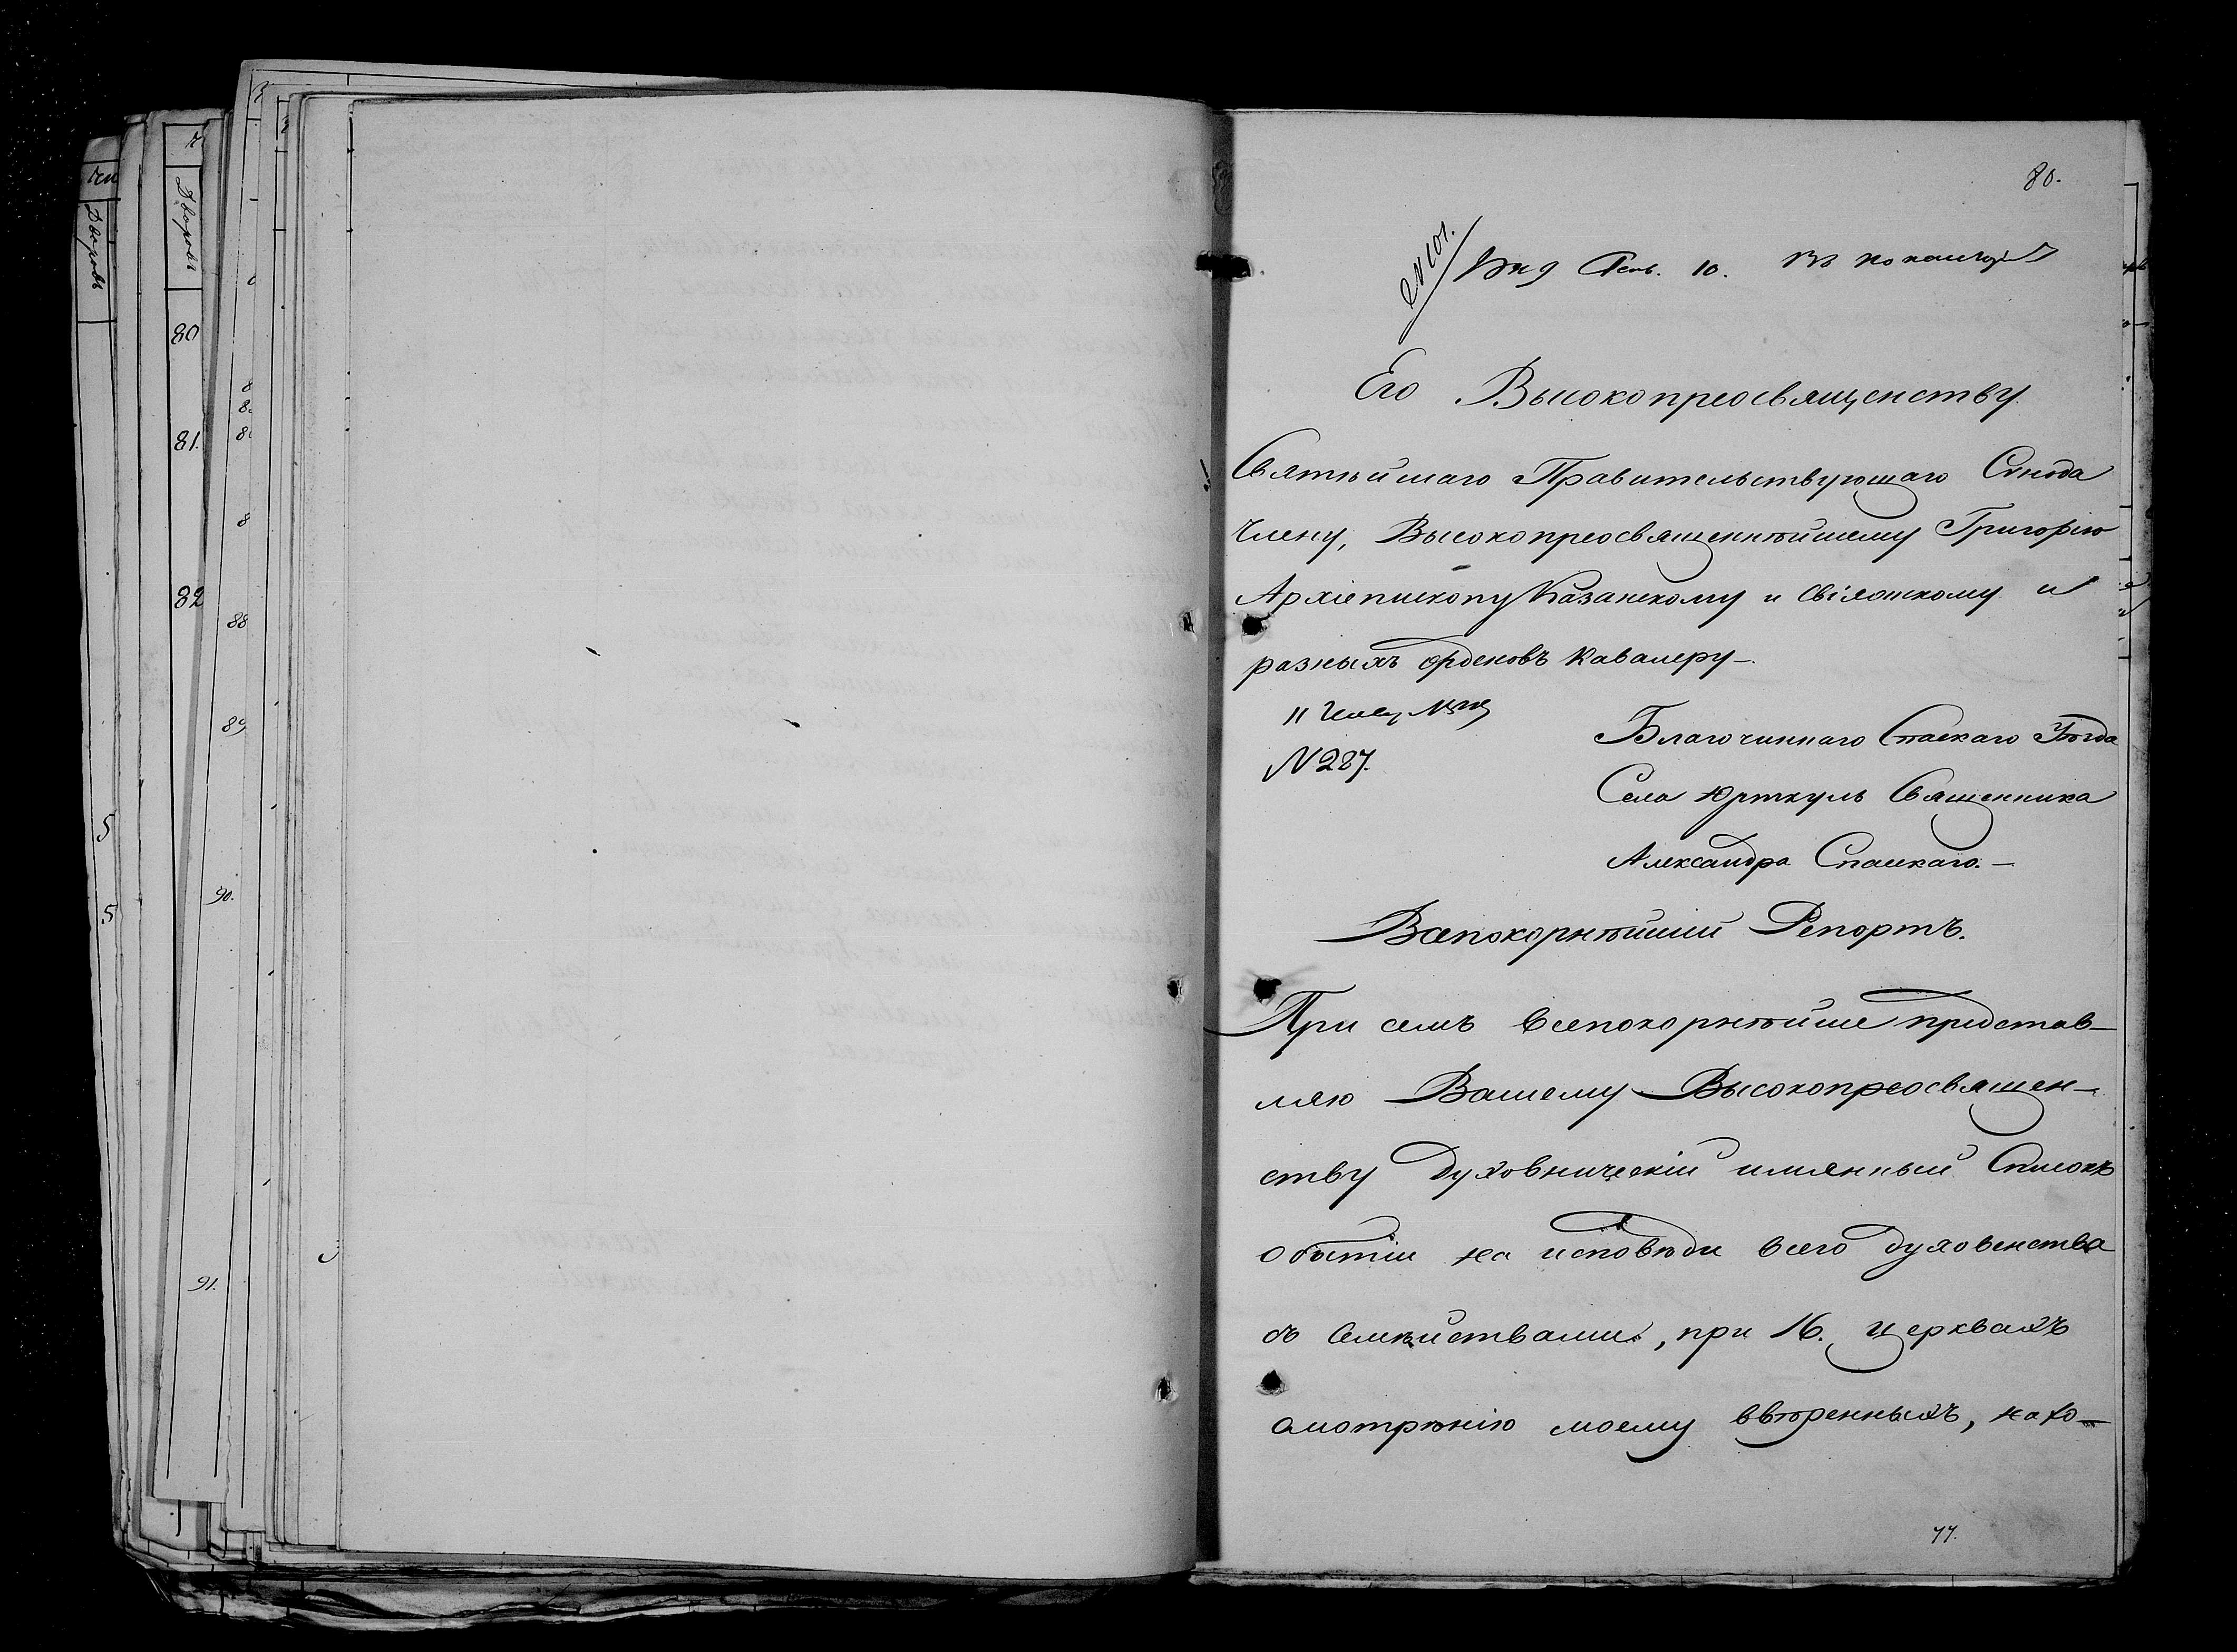 80.
№ 101.
Генв. 10. Въ
Его Высокопреосвященству
Святѣйшаго Правительствующаго Сѵнода
Члену, Высокопреосвященнѣйшему Григорію
Архіепископу Казанскому и Свіяжскому и
разныхъ орденовъ Кавалеру –.
№ 287.
Благочиннаго Спаскаго Уѣзда
Села Юрткуль Священника
Александра Спаскаго. –
Всепокорнѣйшій Репортъ.
При семъ всепокорнѣйше представ–
ляю Вашему Высокопреосвящен–
ству духовническій имянный Списокъ
о бытіи на исповѣди всего духовенства
съ Семѣйствами, при 16. церквахъ
смотрѣнію моему ввѣренныхъ, нахо–
77.
Дворовъ
Дворовъ
80
81.
82
88
89
90.
91.
5
5